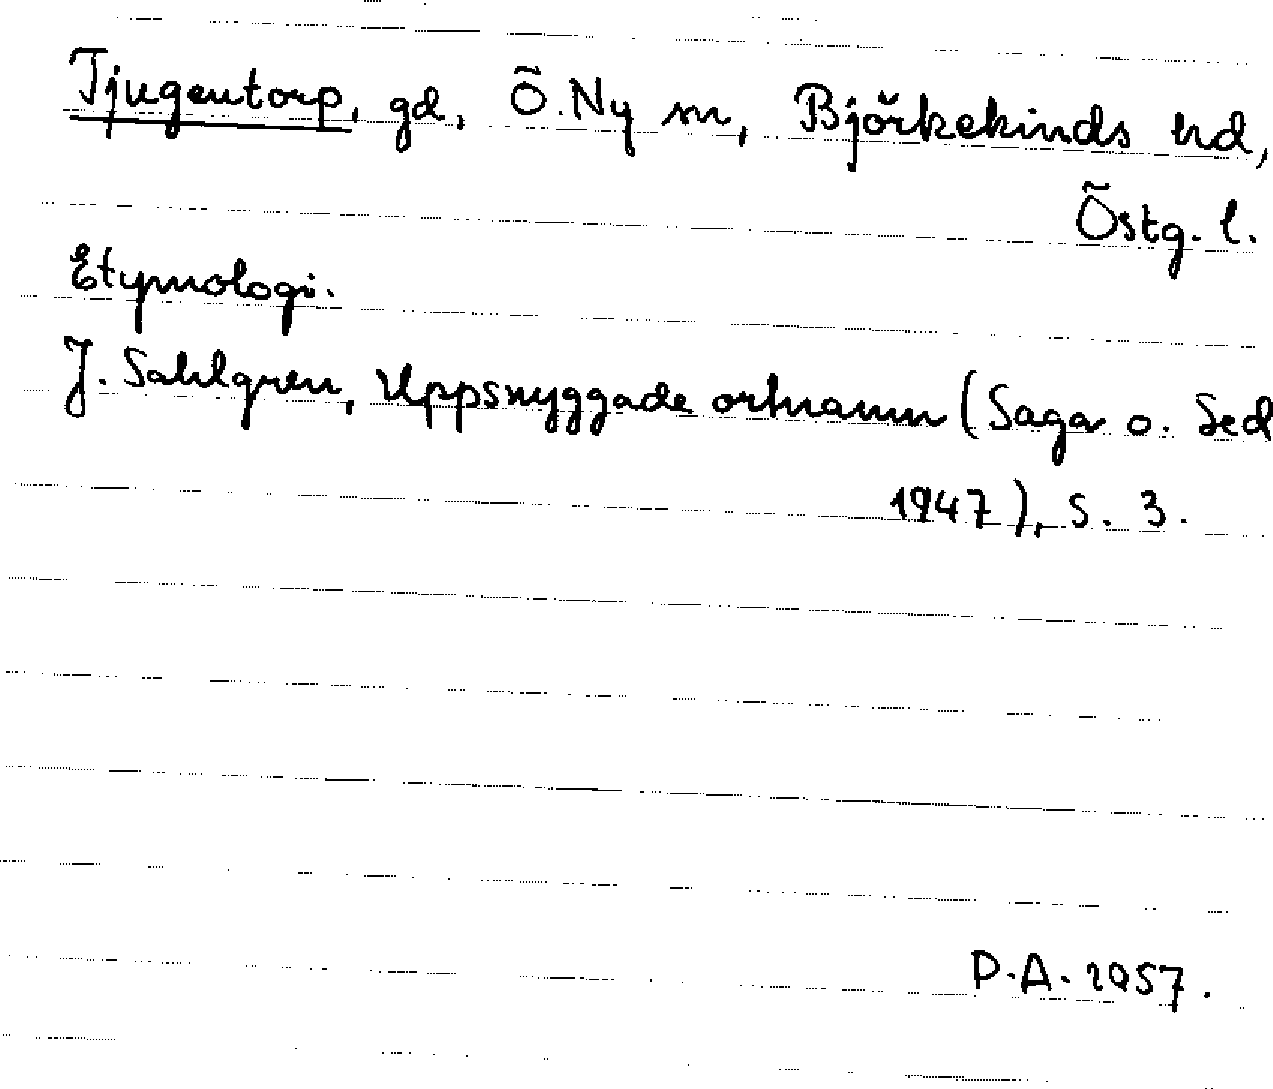 Tjugentorp, gd, Ö. Ny sn, Björkekinds hd,
Östg. l.
Etymologi.
J. Sahlgren, Uppsnyggade ortnamn (Saga o. Sed
1947), s. 3.
D.A. 1957.